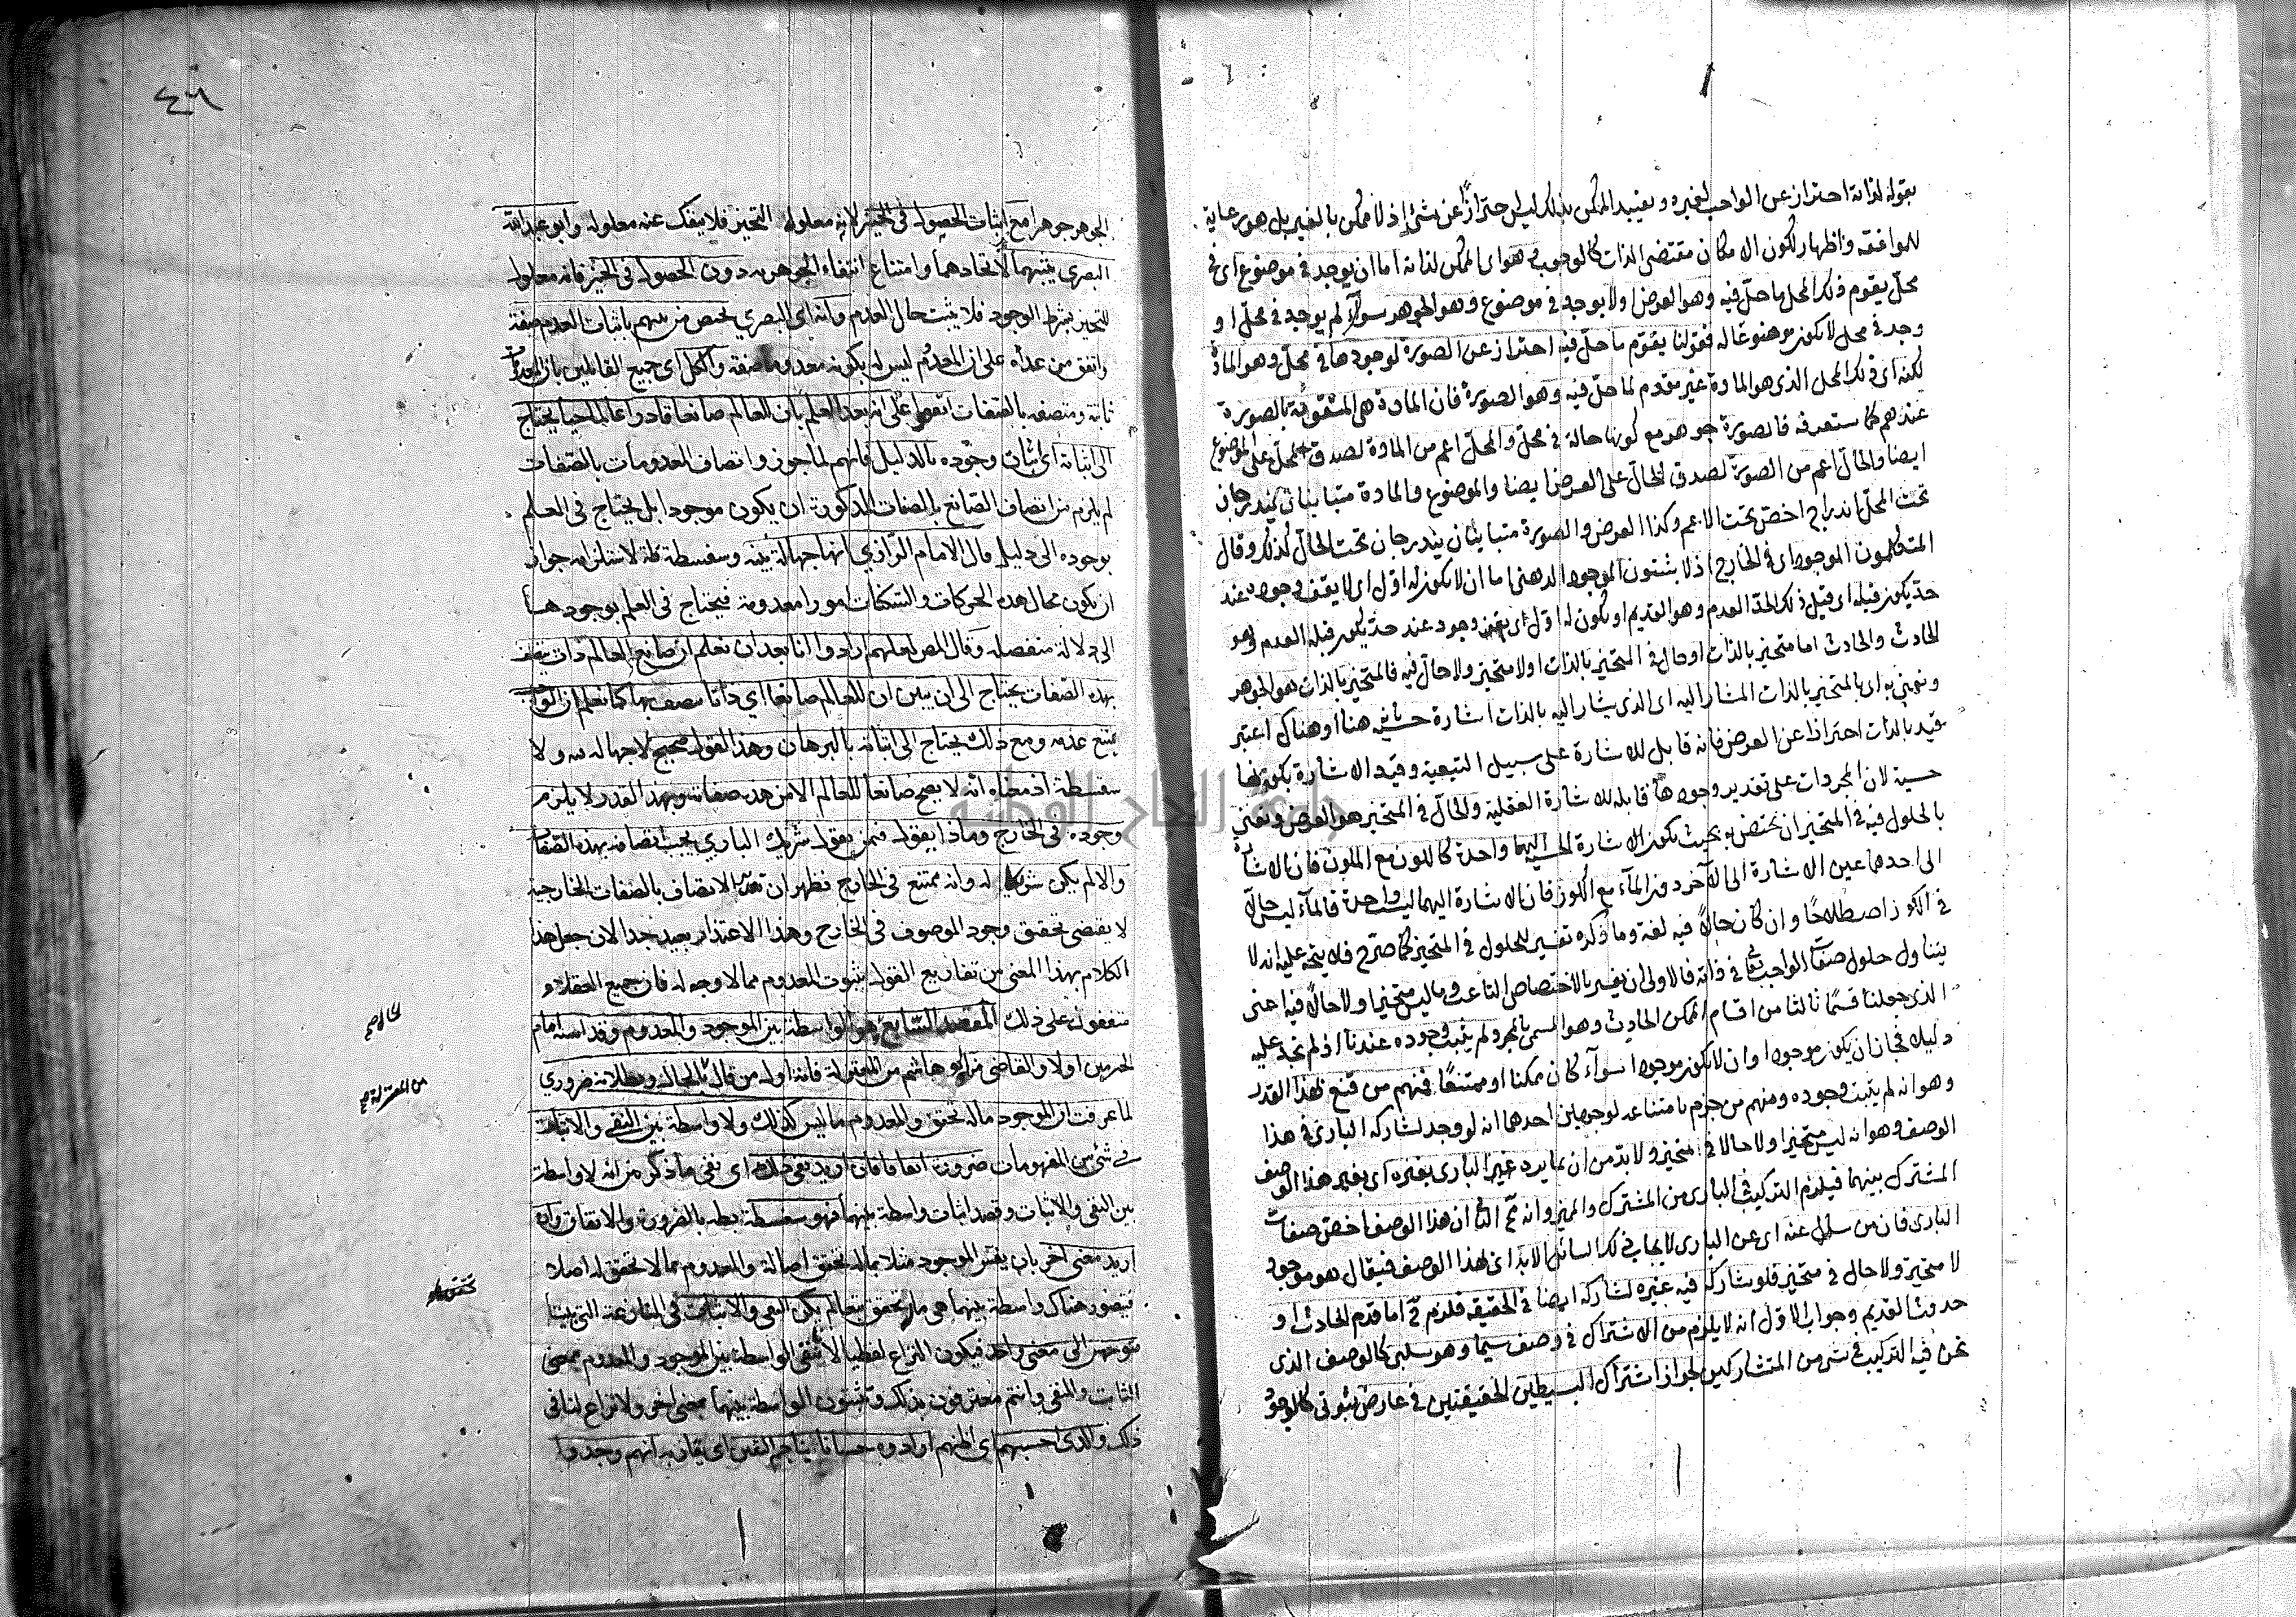 بقوله لذاته احتراز عن الواجب لغيره وتقييد الممكن بذلك ليس احترازًا عن شئ اذ لا ممكن بالغير بل هو رعاية
للموافقة واظهار لكون الامكان مقتضى الذات كالوجوب هو اى الممكن لذاته اما ان يوجد في موضوع اى في
محل يقوم ذلك المحل ما حل فيه وهو العرض او لا يوجد في موضوع وهو الجوهر سوآء لم يوجد في محل او
وجد في محل لا يكون موضوعًا له فقولنا يقوم ما حل فيه احتراز عن الصورة لوجودها في محل وهو المادة
لكنه اى ذلك المحل الذى هو المادة غير مقوم لما حل فيه وهو الصورة فان المادة هى المتقومة بالصورة
عندهم كما ستعرفه فالصورة جوهر مع كونها حالة في محل والمحل اعم من المادة لصدق المحل على الموضوع
ايضا والحال اعم من الصورة لصدق الحال على العرض ايضا والموضوع والمادة متباينان يندرجان
تحت المحل اندراج اخص تحت الاعم وكذا العرض والصورة متباينان يندرجان تحت الحال كذلك وقال
المتكلمون الموجود اى في الخارج اذ لا يثبتون الموجود الذهنى اما ان لا يكون له اول اى لا يقف وجوده عند
حد يكون قبله اى قبل ذلك الحد العدم وهو القديم او يكون له اول اى يقف وجوده عند حد يكون قبله العدم وهو
الحادث والحادث اما متحيز بالذات او حال في المتحيز بالذات او لا متحيز ولا حال فيه فالمتحيز بالذات هو الجوهر
ونعنى به اى بالمتحيز بالذات المشار اليه اى الذى يشار اليه بالذات اشارة حسية بانه هنا او هناك اعتبر
قيد بالذات احترازا عن العرض فانه قابل للاشارة على سبيل التبعية وقيد الاشارة بكونها
حسية لان المجردات على تقدير وجودها قابلة للاشارة العقلية والحال في المتحيز هو العرض ونعنى
بالحلول فيه في المتحيز ان يختص به بحيث تكون الاشارة الحسية اليهما واحدة كاللون مع المتلون فان الاشارة
الى احدهما عين الاشارة الى الآخر دون المآء مع الكوز فان الاشارة اليهما ليست واحدة فالمآء ليس حالا
في الكوز اصطلاحًا وان كان حالاً فيه لغة وما ذكره تفسير للحلول في المتحيز كما صرح فلا يتجه عليه انه لا
يتناول حلول صفات الواجب تعالى في ذاته فالاولى ان يفسر بالاختصاص الناعت وما ليس متحيزا ولا حالاً فيه اعنى
الذى جعلناه قسمًا ثالثا من اقسام الممكن الحادث وهو المسمى بالمجرد لم يثبت وجوده عندنا اذ لم نجد عليه
دليلا فجاز ان يكون موجودا وان لا يكون موجودا سوآء كان ممكنا او ممتنعًا فمنهم من قنع بهذا القدر
وهو انه لم يثبت وجوده ومنهم من جزم بامتناعه لوجهين احدهما انه لو وجد لشاركه البارى في هذا
الوصف وهو انه ليس متحيزا ولا حالا في متحيز ولا بد من ان يمايزه غير البارى بغيره اى بغير هذا الوصف
المشترك بينهما فيلزم التركيب في البارى من المشترك والمميز وانه مح الثانى ان هذا الوصف اخص صفات
البارى فان من سئل عنه اى عن البارى لا يجاب في ذلك السائل الا بذا اى بهذا الوصف فيقال هو موجود
لا متحيز ولا حال في متحيز فلو شاركه فيه غيره لشاركه ايضا في الحقيقة فلزم ح اما قدم الحادث او
حدوث القديم وجواب الاول انه لا يلزم من الاشتراك في وصف سيما وهو سلبى كالوصف الذى
نحن فيه التركيب في شئ من المتشاركين لجواز اشتراك البسيطين الحقيقيين في عارض ثبوتى كالوجود
٤٦
الجوهر جوهرا مع اثبات الحصول في الحيز لانه معلول التحيز فلا ينفك عنه معلوله وابو عبد الله
البصرى يثبتهما لاتحادهما وامتناع انتفاء الجوهرية دون الحصول في الحيز فانه معلول
للتحيز بشرط الوجود فلا يثبت حال العدم وانه اى البصري يختص من بينهم باثبات العدم صفة
واتفق من عداه على ان المعدوم ليس له بكونه معدوما صفة والكل اى جميع القائلين بان المعدوم
ثابت ومتصف بالصفات اتفقوا على انه بعد العلم بان للعالم صانعا قادرا عالما حيا يحتاج
الى اثباته اى اثبات وجوده بالدليل فانهم لما جوزوا اتصاف المعدومات بالصفات
لم يلزم من اتصاف الصانع بالصفات المذكورة ان يكون موجودا بل يحتاج في العلم
بوجوده الى دليل قال الامام الرازي انها جهالة بينة وسفسطة فانه لا ستلزامه جواز
ان يكون محال هذه الحركات والسكنات امورا معدومة فيحتاج في العلم بوجودها
الى دلالة منفصلة وقال المص لعلهم ارادوا انا بعد ان نعلم ان صانع العالم ذات يتصف
بهذه الصفات يحتاج الى ان نبين ان للعالم صانعا اى ذاتا متصف بها كما نعلم ان الواجب
يمتنع عدمه ومع ذلك يحتاج الى اثباته بالبرهان وهذا القول صحيح لا جهالة فيه ولا
سفسطة اذ معناه انه لا يصح صانعا للعالم الا من هذه صفاته وبهذا القدر لا يلزم
وجوده في الخارج وماذا يقول فمن يقول شريك البارى يجب اتصافه بهذه الصفات
والا لم يكن شريكا له وانه ممتنع في الخارج فظهر ان تقدير الاتصاف بالصفات الخارجية
لا يقتضى تحقيق وجود الموصوف في الخارج وهذا الاعتذار بعيد جدا لان جعل هذا
الكلام بهذا المعنى من تفاريع القول بثبوت المعدوم مما لا وجه له فان جميع العقلاء
متفقون على ذلك المقصد السابع هو الواسطة بين الموجود والمعدوم وقد اثبته امام
الحرمين اولا والقاضى منا وابو هاشم من المعتزلة فانه اول من قال بالحال وبطلانه ضروري
لما عرفت ان الموجود ماله تحقق والمعدوم ما ليس كذلك ولا واسطة بين النفى والاثبات
في شئ من المفهومات ضرورة اتفاقا فان اريد نفى ذلك اى نفى ما ذكر من انه لا واسطة
بين النفى والاثبات وقصد اثبات واسطة بينهما فهو سفسطة بط بالضرورة والاتفاق وان
اريد معنى اخر بان يفسر الموجود مثلا بماله تحقق اصالة والمعدوم بما لا تحقق له اصلا
فيتصور هناك واسطة بينهما هى ما يتحقق تبعا لم يكن النفى والاثبات في المنازعة التى بيننا
متوجهين الى معنى واحد فيكون النزاع لفظيا لانا ننفى الواسطة بين الموجود والمعدوم بمعنى
الثابت والمنفى وانتم معترفون بذلك وتثبتون الواسطة بينهما بمعنى اخر ولا نزاع لنا في
ذلك والذى احسبهم اى اظنهم ارادوه حسبانا يتاخم اليقين اى يقاربه انهم وجدوا
الحال صح
من المعتزلة صح